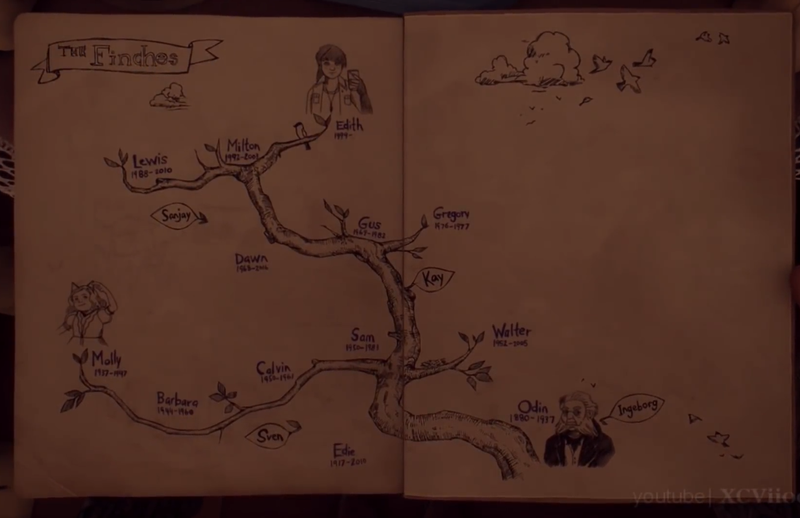 THE Finches
Edith
1999-
Lewis
1988-2010
Milton
1992-2003
Sanjay
Gus
1969-1982
Gregory
1976-1977
Dawn
1968-2016
Kay
Sam
1950-1983
Walter
1952-2005
Molly
1937-1947
Calvin
1950-1961
Barbara
1944-1960
Sven
Edie
1917-2010
Odin
1880-1937
Ingeborg
youtube| XCVii